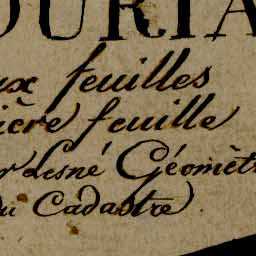 OURIA
ux feuilles
ière feuille
r Lesné Géomèt
du Cadastre.